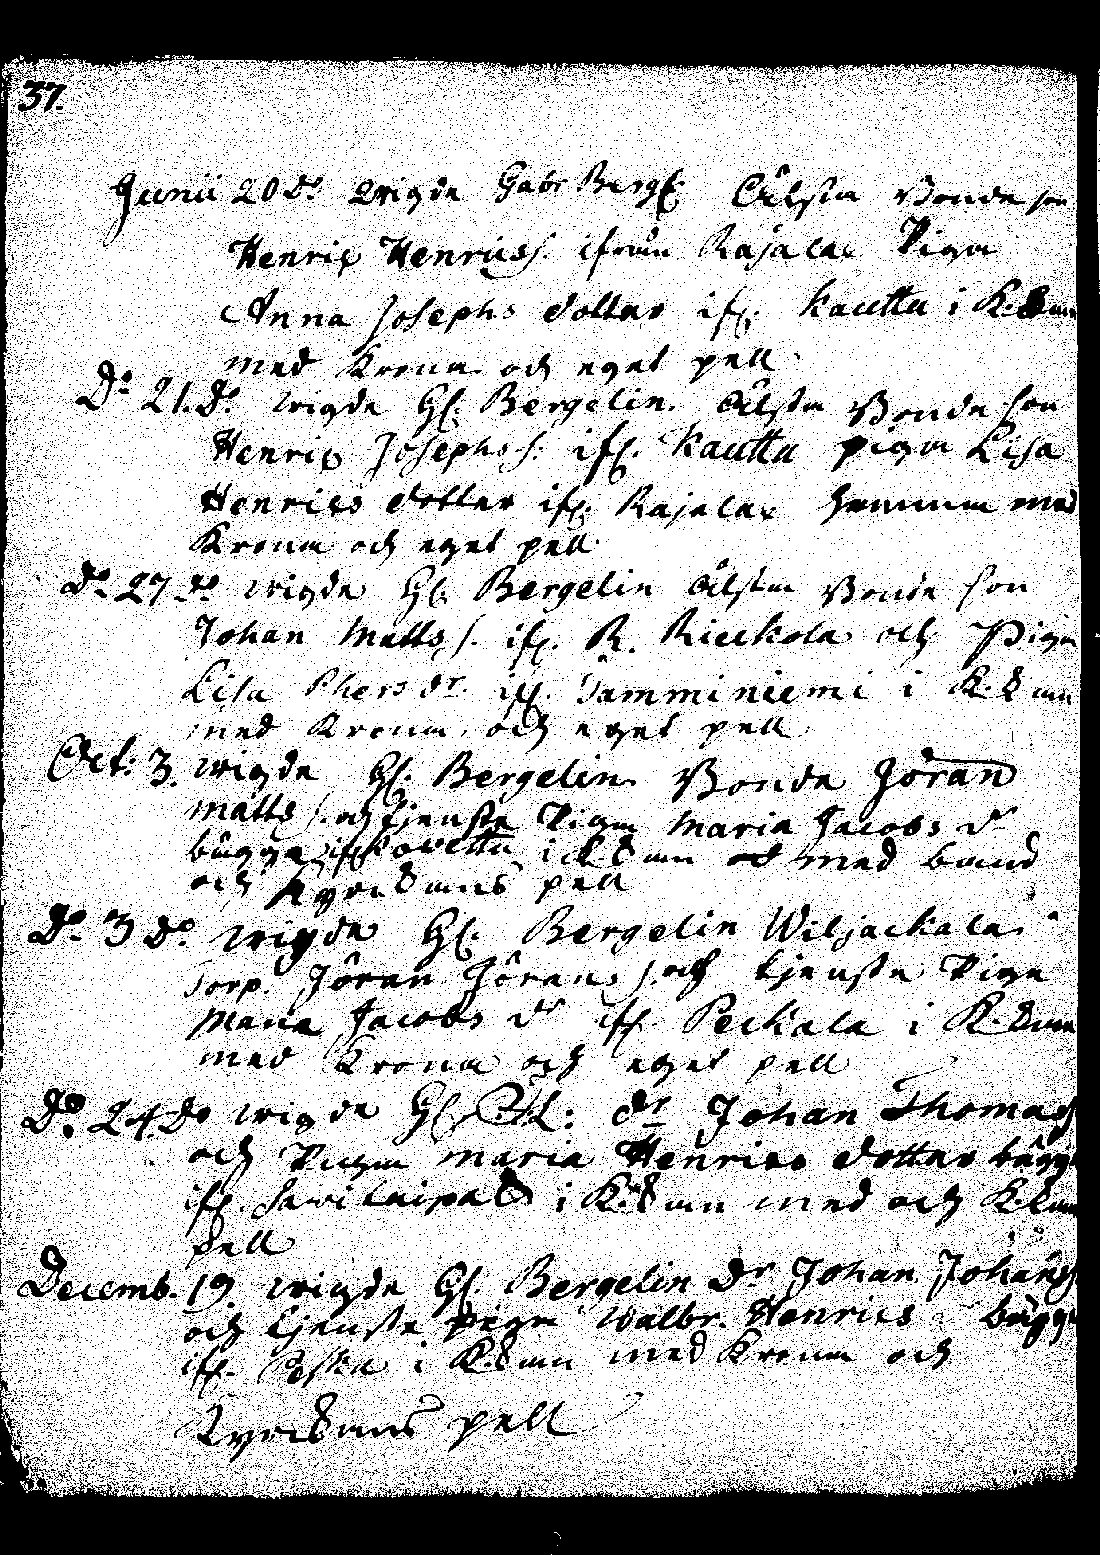 37.
Junii 20 d:o wigde Gabr Bergl: Älsta Bonde son
Henric Henrics s. ifrån Rajalax Piga
Anna Josephs dotter ifr. Kauttu i K.
med Krona och eget pell
D:o 21. d:o wigde H. Bergelin. Älsta Bonde son
Henric Josephs s. ifr. Kauttu piga Lisa
Henrics dotter ifr. Rajalax hemma med
Krona och eget pell
d:o 27 d:o wigde H. Bergelin älsta Bonde son
Johan Matts s. ifr. R. Rieckola och Piga
Lisa Phers dr. ifr. Samminiemi i K.
med Krona och eget pell
Oct: 3. wigde H. Bergelin Bonde Jöran
Matts s. och tjenste Piga Maria Jacobs d:r
bägge ifr i med band
och pell
D:o 3 d:o wigde H. Bergelin Wiljackala
torp. Jöran Jörans s. och tjenste Piga
Maria Jacobs d:r ifr. Peckala i K.
med Krona och eget pell
D:o 24. D:o wigde H. dr Johan Thomas
och Piga Maria Henrics dotter bägge
ifr. Sawilaipale i med och
pell
Decemb. 19. wigde H. Bergelin Dr Johan Johans
och tjenste Piga Walbr. Henrics bägge
ifr. i K. med Krona och
pell